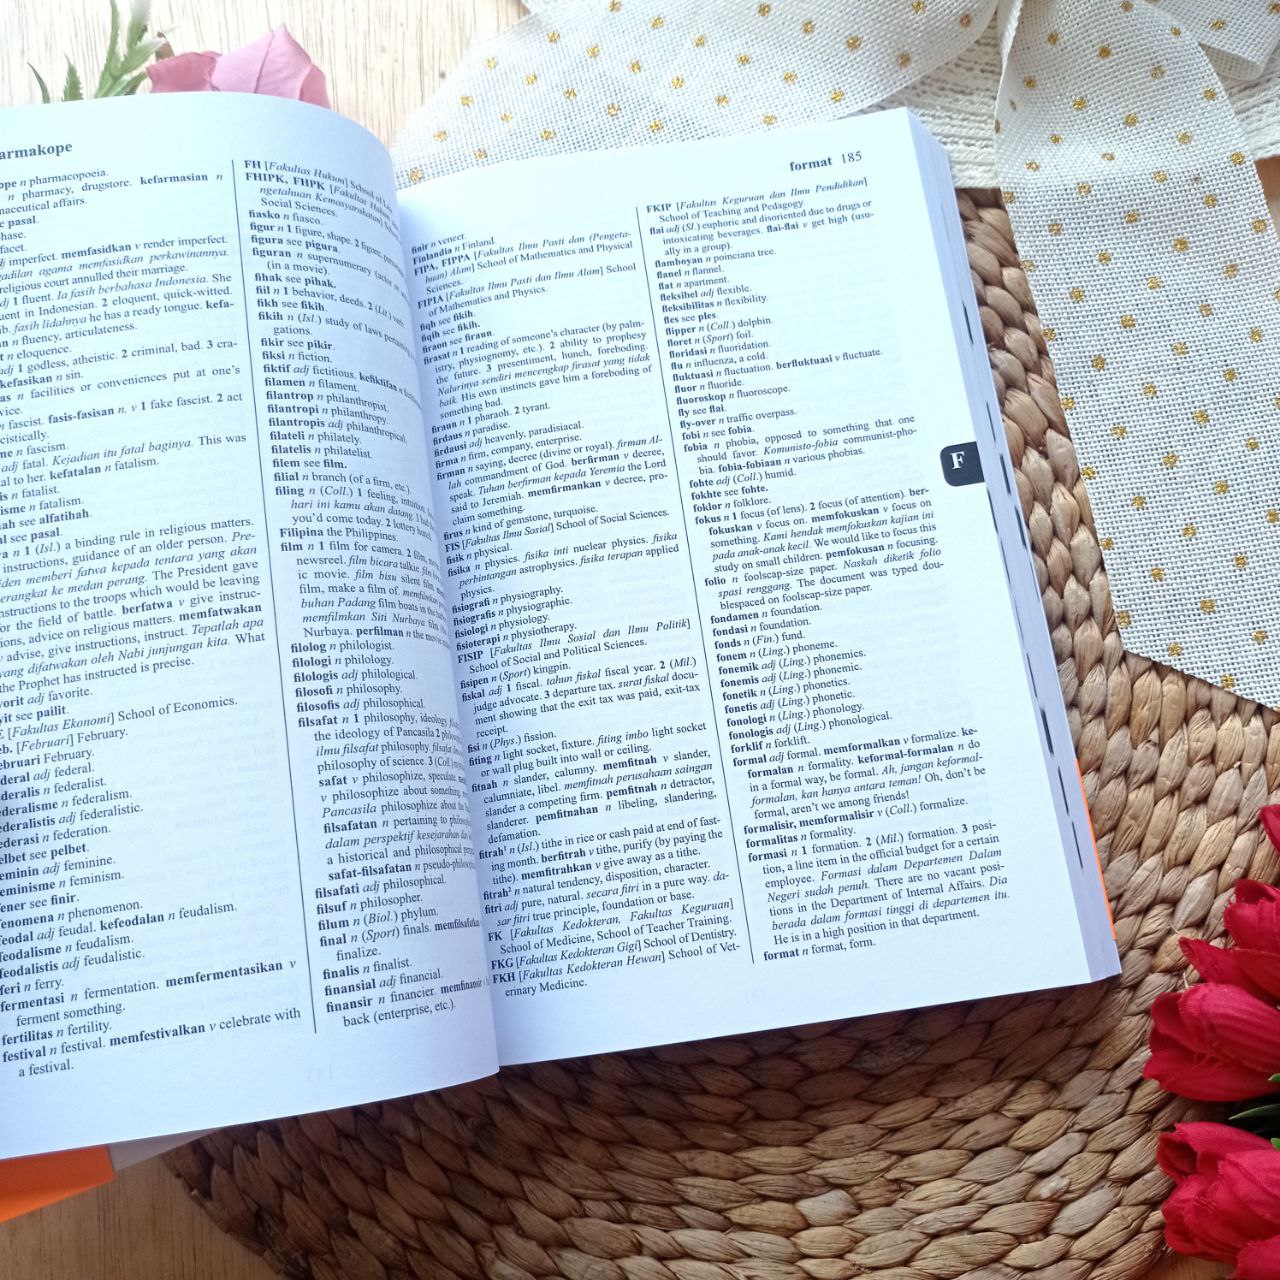 armakope
ope n pharmacopoeia.
n pharmacy, drugstore. kefarmasian n
naceutical affairs.
e pasal.
hase.
facet.
j imperfect. memfasidkan v render imperfect.
gadilan agama memfasidkan perkawinannya.
religious court annulled their marriage.
dj 1 fluent. Ia fasih berbahasa Indonesia. She
uent in Indonesian. 2 eloquent, quick-witted.
ib. fasih lidahnya he has a ready tongue. kefa-
n n fluency, articulateness.
t n eloquence.
adj 1 godless, atheistic. 2 criminal, bad. 3 cra-
kefasikan n sin.
as n facilities or conveniences put at one's
vice.
n fascist. fasis-fasisan n, v 1 fake fascist. 2 act
cistically.
me n fascism.
adj fatal. Kejadian itu fatal baginya. This was
al to her. kefatalan n fatalism.
is n fatalist.
isme n fatalism.
hah see alfatihah.
al see pasal.
a n 1 (Isl.) a binding rule in religious matters.
instructions, guidance of an older person. Pre-
iden memberi fatwa kepada tentara yang akan
erangkat ke medan perang. The President gave
nstructions to the troops which would be leaving
or the field of battle. berfatwa v give instruc-
ions, advice on religious matters. memfatwakan
v advise, give instructions, instruct. Tepatlah apa
yang difatwakan oleh Nabi junjungan kita. What
the Prophet has instructed is precise.
vorit adj favorite.
yit see pailit.
E [Fakultas Ekonomi] School of Economics.
eb. [Februari] February.
ebruari February.
deral adj federal.
ederalis n federalist.
ederalisme n federalism.
ederalistis adj federalistic.
ederasi n federation.
elbet see pelbet.
eminin adj feminine.
eminisme n feminism.
ener see finir.
enomena n phenomenon.
eodal adj feudal. kefeodalan n feudalism.
feodalisme n feudalism.
feodalistis adj feudalistic.
feri n ferry.
fermentasi n fermentation. memfermentasikan v
ferment something.
fertilitas n fertility.
festival n festival. memfestivalkan v celebrate with
a festival.
FH [Fakultas Hukum] School of La
FHIPK, FHPK [Fakultas Hukum
ngetahuan Kemasyarakatan]
Social Sciences.
fiasko n fiasco.
figur n 1 figure, shape. 2 figure,
figura see pigura.
figuran n supernumerary (actor
(in a movie).
fihak see pihak.
fiil n 1 behavior, deeds. 2 (Lit.) verb.
fikh see fikih.
fikih n (Isl.) study of laws pertaining
gations.
fikir see pikir.
fiksi n fiction.
fiktif adj fictitious. kefiktifan n
filamen n filament.
filantrop n philanthropist.
filantropi n philanthropy.
filantropis adj philanthropical.
filateli n philately.
filatelis n philatelist.
filem see film.
filial n branch (of a firm, etc.).
filing n (Coll.) 1 feeling, intuition.
hari ini kamu akan datang. I had
you'd come today. 2 lottery hunch.
Filipina the Philippines.
film n 1 film for camera. 2 film, movie.
newsreel. film bicara talkie. film
ic movie. film bisu silent film.
film, make a film of. memfilmkan
buhan Padang film boats in the
memfilmkan Siti Nurbaya film
Nurbaya. perfilman n the movie
filolog n philologist.
filologi n philology.
filologis adj philological.
filosofi n philosophy.
filosofis adj philosophical.
filsafat n 1 philosophy, ideology.
the ideology of Pancasila 2
ilmu filsafat philosophy. filsafat
philosophy of science. 3 (Coll.)
safat v philosophize, speculate.
v philosophize about something.
Pancasila philosophize about the
filsafatan n pertaining to
dalam perspektif kesejarahan dan
a historical and philosophical
safat-filsafatan n pseudo-philosophy
filsafati adj philosophical.
filsuf n philosopher.
filum n (Biol.) phylum.
final n (Sport) finals. memfinalkan
finalize.
finalis n finalist.
finansial adj financial.
finansir n financier. memfinansir v
back (enterprise, etc.).
format 185
finir n veneer.
Finlandia n Finland.
FIPA, FIPPA [Fakultas Ilmu Pasti dan (Pengeta-
huan) Alam] School of Mathematics and Physical
Sciences.
FIPIA [Fakultas Ilmu Pasti dan Ilmu Alam] School
of Mathematics and Physics.
fiqh see fikih.
fiqih see fikih.
firaon see firaun.
firasat n 1 reading of someone's character (by palm-
istry, physiognomy, etc.). 2 ability to prophesy
the future. 3 presentiment, hunch, foreboding.
Nalurinya sendiri mencengkap firasat yang tidak
baik. His own instincts gave him a foreboding of
something bad.
firaun n 1 pharaoh. 2 tyrant.
firdaus n paradise.
firdausi adj heavenly, paradisiacal.
firma n firm, company, enterprise.
firman n saying, decree (divine or royal). firman Al-
lah commandment of God. berfirman v decree,
speak. Tuhan berfirman kepada Yeremia the Lord
said to Jeremiah. memfirmankan v decree, pro-
claim something.
firus n kind of gemstone, turquoise.
FIS [Fakultas Ilmu Sosial] School of Social Sciences.
fisik n physical.
fisika n physics. fisika inti nuclear physics. fisika
perbintangan astrophysics. fisika terapan applied
physics.
fisiografi n physiography.
fisiografis n physiographic.
fisiologi n physiology.
fisioterapi n physiotherapy.
FISIP [Fakultas Ilmu Sosial dan Ilmu Politik]
School of Social and Political Sciences.
fisipen n (Sport) kingpin.
fiskal adj 1 fiscal. tahun fiskal fiscal year. 2 (Mil.)
judge advocate. 3 departure tax. surat fiskal docu-
ment showing that the exit tax was paid, exit-tax
receipt.
fisi n (Phys.) fission.
fiting n light socket, fixture. fiting imbo light socket
or wall plug built into wall or ceiling.
fitnah n slander, calumny. memfitnah v slander,
calumniate, libel. memfitnah perusahaan saingan
slander a competing firm. pemfitnah n detractor,
slanderer. pemfitnahan n libeling, slandering,
defamation.
fitrah¹ n (Isl.) tithe in rice or cash paid at end of fast-
ing month. berfitrah v tithe, purify (by paying the
tithe). memfitrahkan v give away as a tithe.
fitrah² n natural tendency, disposition, character.
fitri adj pure, natural. secara fitri in a pure way. da-
sar fitri true principle, foundation or base.
FK [Fakultas Kedokteran, Fakultas Keguruan]
School of Medicine, School of Teacher Training.
FKG [Fakultas Kedokteran Gigi] School of Dentistry.
FKH [Fakultas Kedokteran Hewan] School of Vet-
erinary Medicine.
FKIP [Fakultas Keguruan dan Ilmu Pendidikan]
School of Teaching and Pedagogy.
flai adj (Sl.) euphoric and disoriented due to drugs or
intoxicating beverages. flai-flai v get high (usu-
ally in a group).
flamboyan n poinciana tree.
flanel n flannel.
flat n apartment.
fleksibel adj flexible.
fleksibilitas n flexibility.
fles see ples.
flipper n (Coll.) dolphin.
floret n (Sport) foil.
floridasi n fluoridation.
flu n influenza, a cold.
fluktuasi n fluctuation. berfluktuasi v fluctuate.
fluor n fluoride.
fluoroskop n fluoroscope.
fly see flai.
fly-over n traffic overpass.
fobi n see fobia.
fobia n phobia, opposed to something that one
should favor. Komunisto-fobia communist-pho-
bia. fobia-fobiaan n various phobias.
fohte adj (Coll.) humid.
fokhte see fohte.
foklor n folklore.
fokus n 1 focus (of lens). 2 focus (of attention). ber-
fokuskan v focus on. memfokuskan v focus on
something. Kami hendak memfokuskan kajian ini
pada anak-anak kecil. We would like to focus this
study on small children. pemfokusan n focusing.
folio n foolscap-size paper. Naskah diketik folio
spasi renggang. The document was typed dou-
blespaced on foolscap-size paper.
fondamen n foundation.
fondasi n foundation.
fonds n (Fin.) fund.
fonem n (Ling.) phoneme.
fonemik adj (Ling.) phonemics.
fonemis adj (Ling.) phonemic.
fonetik n (Ling.) phonetics.
fonetis adj (Ling.) phonetic.
fonologi n (Ling.) phonology.
fonologis adj (Ling.) phonological.
forklif n forklift.
formal adj formal. memformalkan v formalize. ke-
formalan n formality. keformal-formalan n do
in a formal way, be formal. Ah, jangan keformal-
formalan, kan hanya antara teman! Oh, don't be
formal, aren't we among friends!
formalisir, memformalisir v (Coll.) formalize.
formalitas n formality.
formasi n 1 formation. 2 (Mil.) formation. 3 posi-
tion, a line item in the official budget for a certain
employee. Formasi dalam Departemen Dalam
Negeri sudah penuh. There are no vacant posi-
tions in the Department of Internal Affairs. Dia
berada dalam formasi tinggi di departemen itu.
He is in a high position in that department.
format n format, form.
F